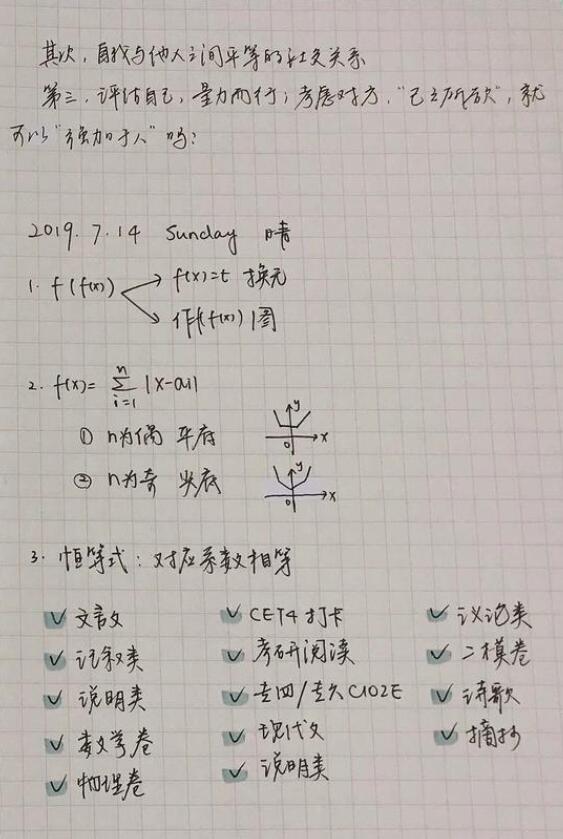 其次，自我与他人之间平等的社交关系
第三，评估自己，量力而行；考虑对方，“己之所欲”，就
可以“强加于人”吗？
2019.7.14 Sunday 晴
1. f(f(x))
f(x)=t 换元
作f(f(x))图
2. f(x)= n∑i=1 |x-ai|
① n为偶 平底
y
0 x
② n为奇 尖底
y
0 x
3. 恒等式：对应系数相等
文言文
记叙类
说明类
数学卷
物理卷
CET4打卡
考研阅读
专四/专八CLOZE
现代文
说明类
议论类
二模卷
诗歌
摘抄